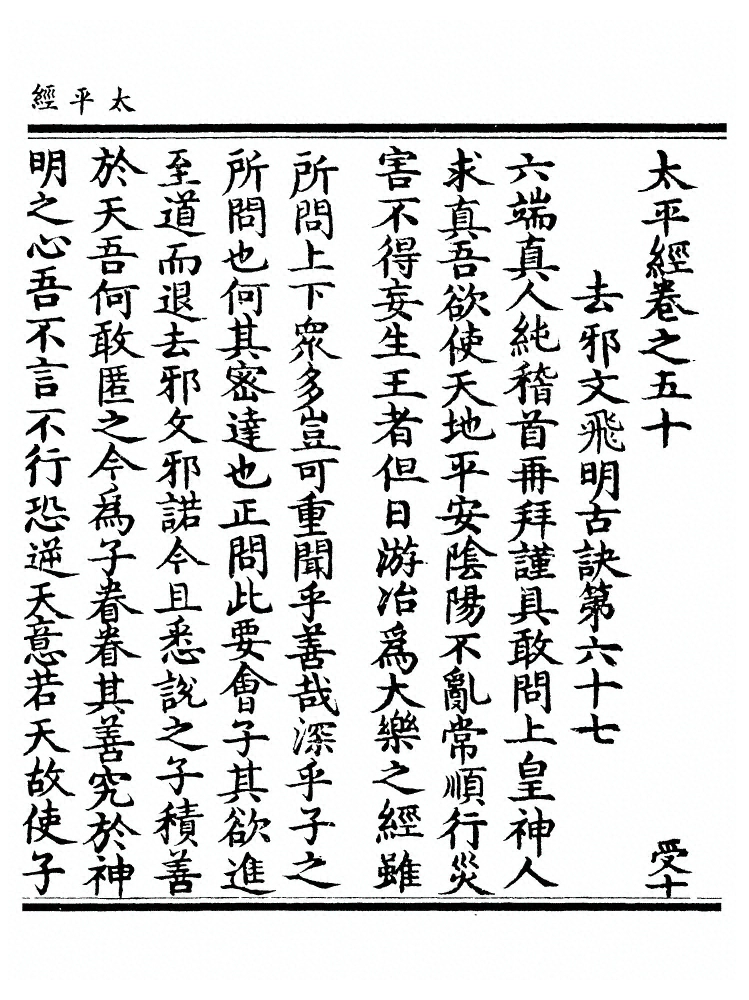 太平經
太平經卷之五十 受十
去邪文飛明古訣第六十七
六端真人純稽首再拜謹具敢問上皇神人
求真吾欲使天地平安陰陽不亂常順行災
害不得妄生王者但日游冶爲大樂之經雖
所問上下衆多豈可重聞乎善哉深乎子之
所問也何其密達也正問此要會子其欲進
至道而退去邪文邪諾今且悉說之子積善
於天吾何敢匿之今爲子眷眷其善究於神
明之心吾不言不行恐逆天意若天故使子